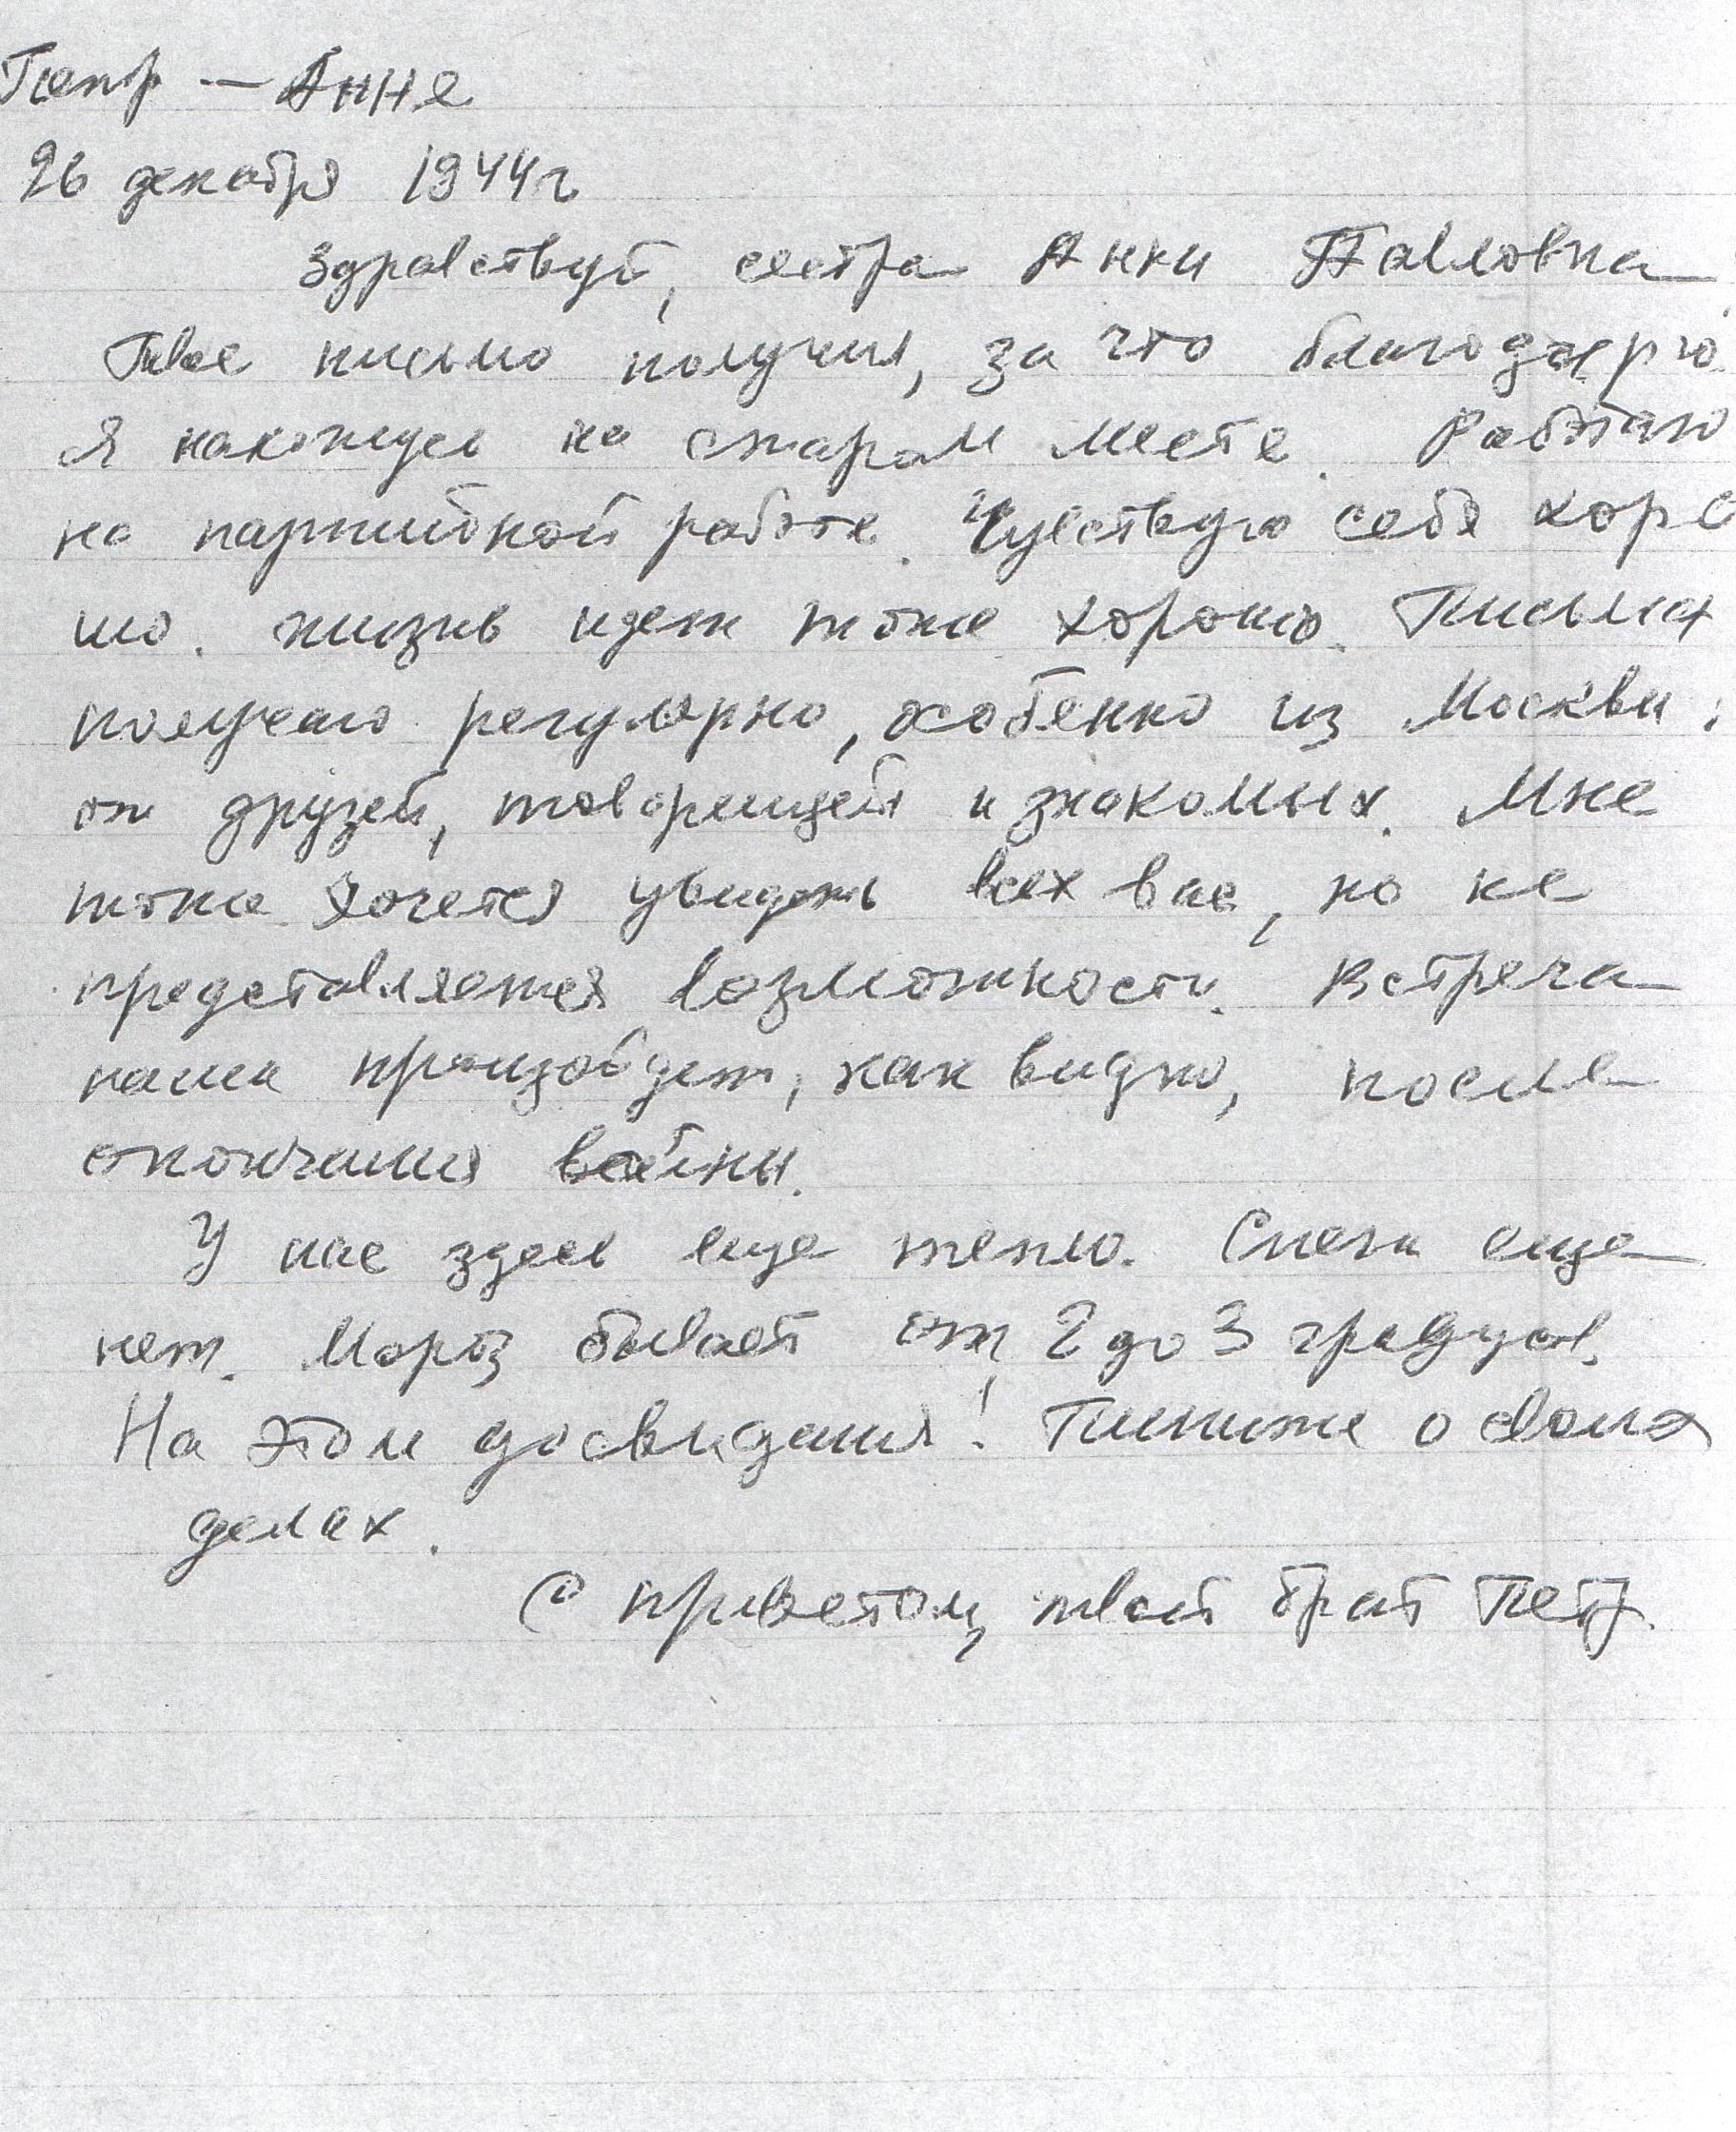 Петр — Анне
26 декабря 1944 г
Здравствуй, сестра Анна Павловна
Твое письмо получил, за что благодарю.
Я нахожусь на старом месте. Работаю
на партийной работе. Чувствую себя хоро
шо. Жизнь идет тоже хорошо. Письма
получаю регулярно, особенно из Москвы:
от друзей, товарищей и знакомых. Мне
тоже хочется увидеть всех вас, но не
представляется возможности. Встреча
наша произойдет, как видно, после
окончания войны.
У нас здесь еще тепло. Снега еще
нет. Мороз бывает от 2 до 3 градусов.
На этом досвидания! Пишите о своих
делах.
С приветом, твой брат Петр.